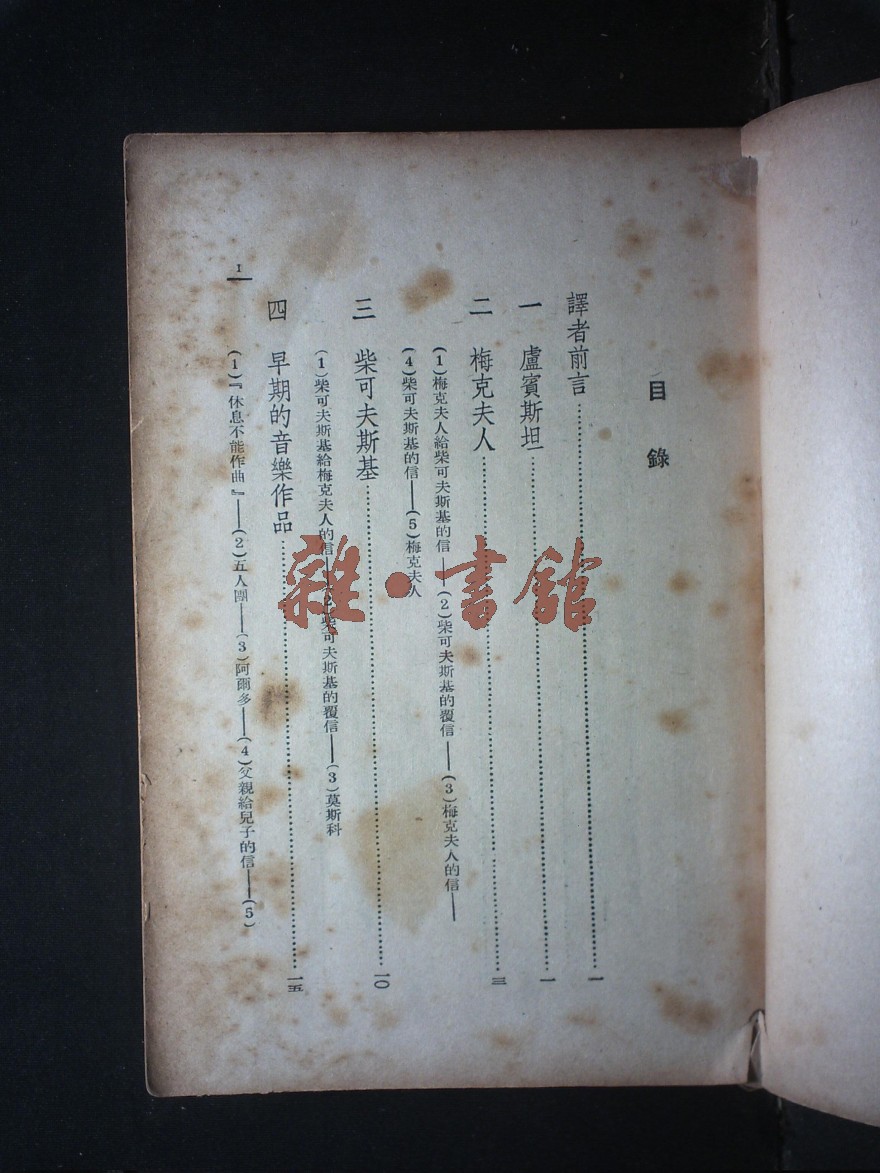 目錄
譯者前言……一
一 盧賓斯坦……一
二 梅克夫人……三
(1)梅克夫人給柴可夫斯基的信——(2)柴可夫斯基的覆信——(3)梅克夫人的信——
(4)柴可夫斯基的信——(5)梅克夫人
三 柴可夫斯基……一〇
(1)柴可夫斯基給梅克夫人的信——(2)柴可夫斯基的覆信——(3)莫斯科
四 早期的音樂作品……一五
(1)『休息不能作曲』——(2)五人團——(3)阿爾多——(4)父親給兒子的信——(5)
1
雜·書館